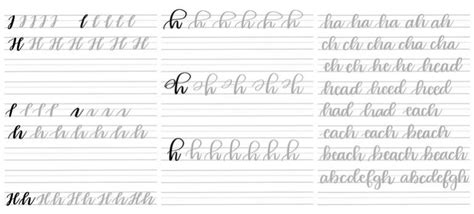 H H H H H H H
h h h h h h h
Hh Hh Hh Hh Hh Hh
h h h h h h
h h h h h h
ha ha ha ah ah
ch cha cha ch ch
eh che he he head
head heed heed
had had each
each each beach
beach beach beach
abcdefgh abcdefgh